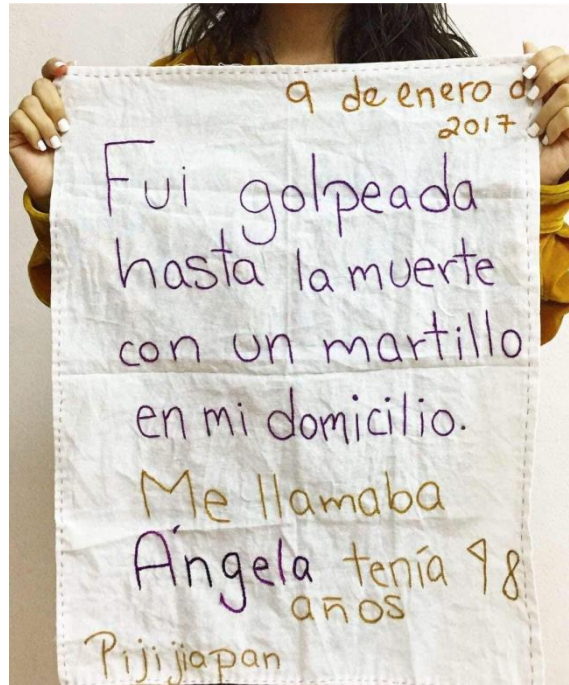 9 de enero d
2017
Fui golpeada
hasta la muerte
con un martillo
en mi domicilio.
Me llamaba
Ángela tenía
años
Pijijiapan